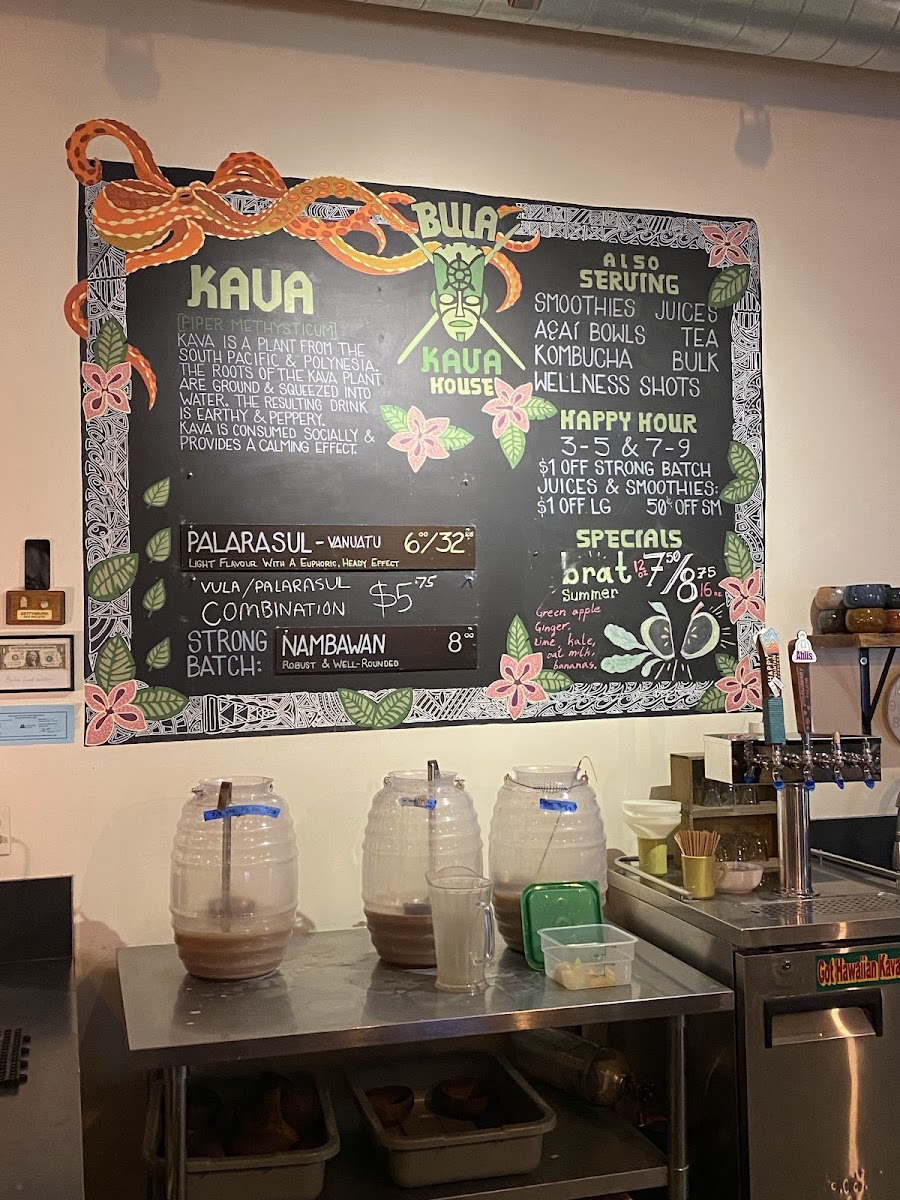 BULA
KAVA
HOUSE
KAVA
[PIPER METHYSTICUM]
KAVA IS A PLANT FROM THE
SOUTH PACIFIC & POLYNESIA.
THE ROOTS OF THE KAVA PLANT
ARE GROUND & SQUEEZED INTO
WATER. THE RESULTING DRINK
IS EARTHY & PEPPERY.
KAVA IS CONSUMED SOCIALLY &
PROVIDES A CALMING EFFECT.
PALARASUL - VANUATU 6⁰⁰/32⁰⁰
LIGHT FLAVOUR WITH A EUPHORIC, HEADY EFFECT
VULA/PALARASUL
COMBINATION $5.75
STRONG
BATCH:
NAMBAWAN 8⁰⁰
ROBUST & WELL-ROUNDED
ALSO
SERVING
SMOOTHIES JUICES
AÇAÍ BOWLS TEA
KOMBUCHA BULK
WELLNESS SHOTS
HAPPY HOUR
3-5 & 7-9
$1 OFF STRONG BATCH
JUICES & SMOOTHIES:
$1 OFF LG 50¢ OFF SM
SPECIALS
brat 12oz 7⁵⁰/8⁷⁵ 16oz
Summer
Green apple
Ginger,
Lime, kale,
oat milk,
bananas.
Ahlis
Got Hawaiian Kava